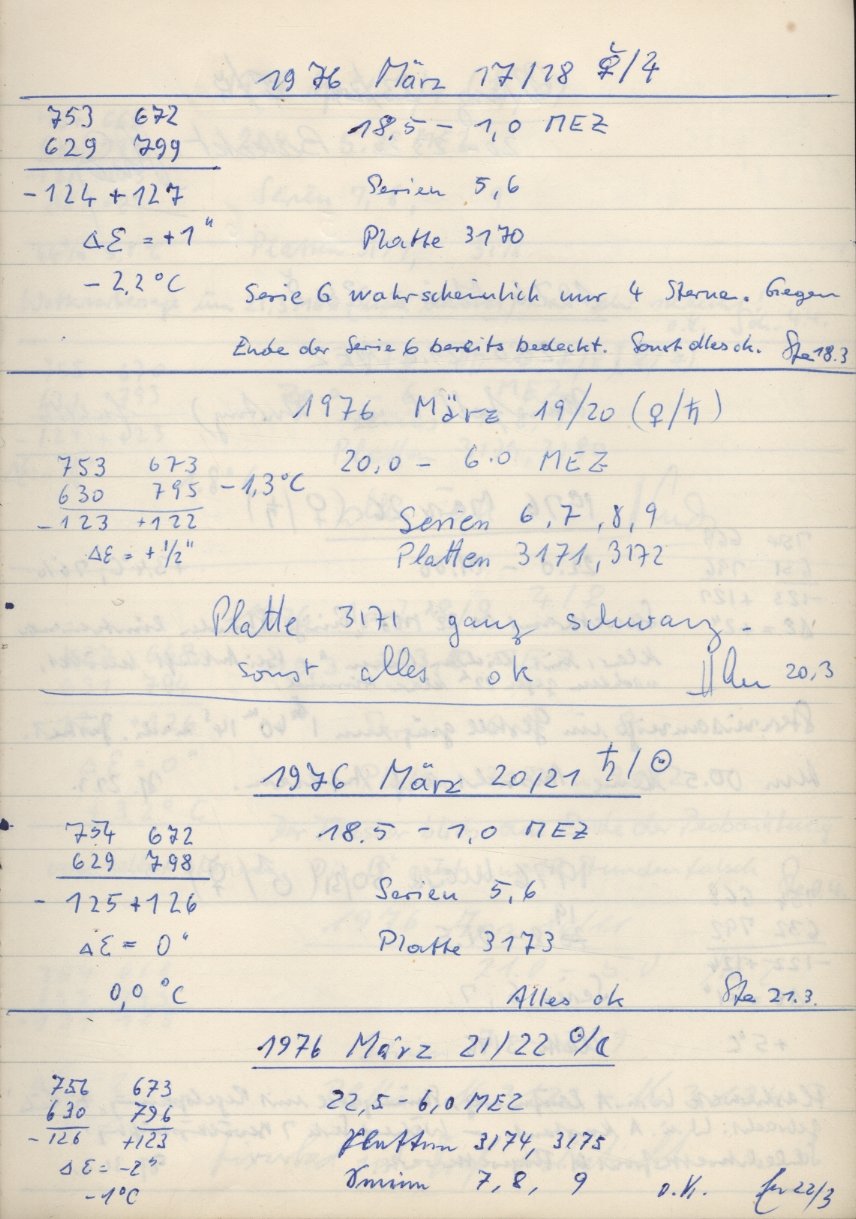 1976 März 17/18 ☿/♃
753 672
629 799
-124 +127
ΔE = +1"
-2,2°C
18,5 - 1,0 MEZ
Serien 5,6
Platte 3170
Serie 6 wahrscheinlich nur 4 Sterne. Gegen
Ende der Serie 6 bereits bedeckt. Sonst alles ok. Ste 18.3
1976 März 19/20 (♀/♄)
753 673
630 795 -1,3°C
-123 +122
ΔE = +1/2"
20,0 - 6.0 MEZ
Serien 6,7,8,9
Platten 3171, 3172
Platte 3171 ganz schwarz.
Sonst alles ok 20,3
1976 März 20/21 ♄/☉
754 672
629 798
-125 +126
ΔE = 0"
0,0 °C
18.5 - 1,0 MEZ
Serien 5,6
Platte 3173
Alles ok Ste 21.3.
1976 März 21/22 ☉/☾
756 673
630 796
-126 +123
ΔE = -2"
-1°C
22,5 - 6,0 MEZ
Platten 3174, 3175
Serien 7, 8, 9 o.K. 22/3